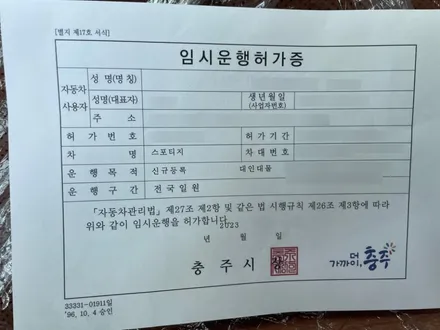 [별지 제17호 서식]
임시운행허가증
자동차 사용자
성 명(명 칭)
성명(대표자) 생년월일 (사업자번호)
주 소
허 가 번 호 허 가 기 간
차 명 스포티지 차 대 번 호
운 행 목 적 신규등록 대인대물
운 행 구 간 전국일원
「자동차관리법」제27조 제2항 및 같은 법 시행규칙 제26조 제3항에 따라
위와 같이 임시운행을 허가합니다.
2023
년 월 일
충 주 시 장
더 가까이, 충주
33331-01911일
'96. 10. 4 승인